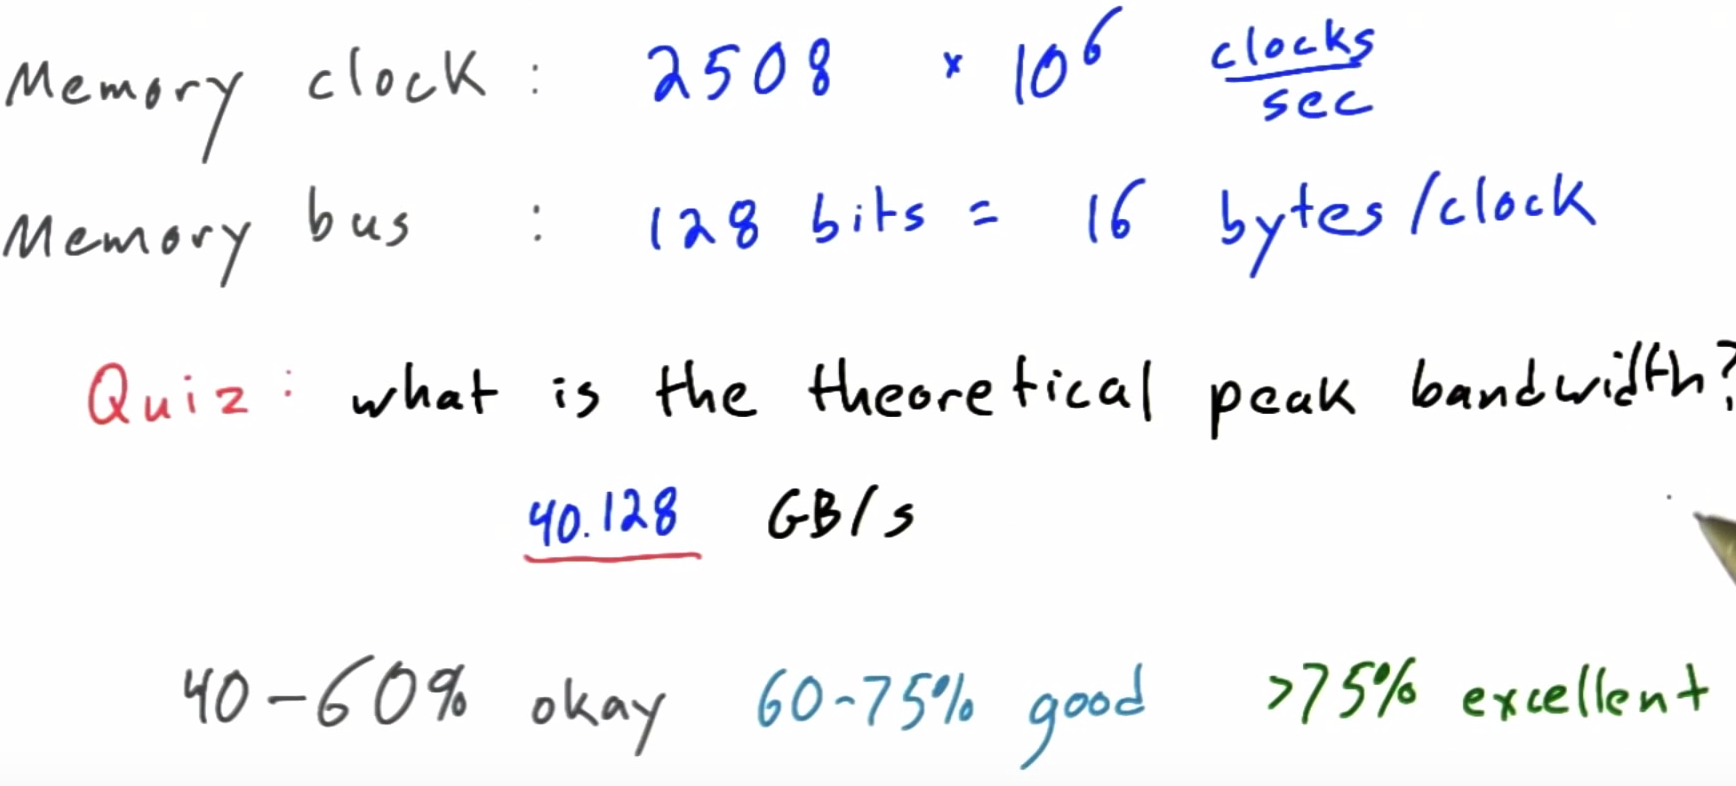 Memory clock : 2508 × 10⁶ clocks/sec
Memory bus : 128 bits = 16 bytes/clock
Quiz: what is the theoretical peak bandwidth?
40.128 GB/s
40-60% okay 60-75% good >75% excellent